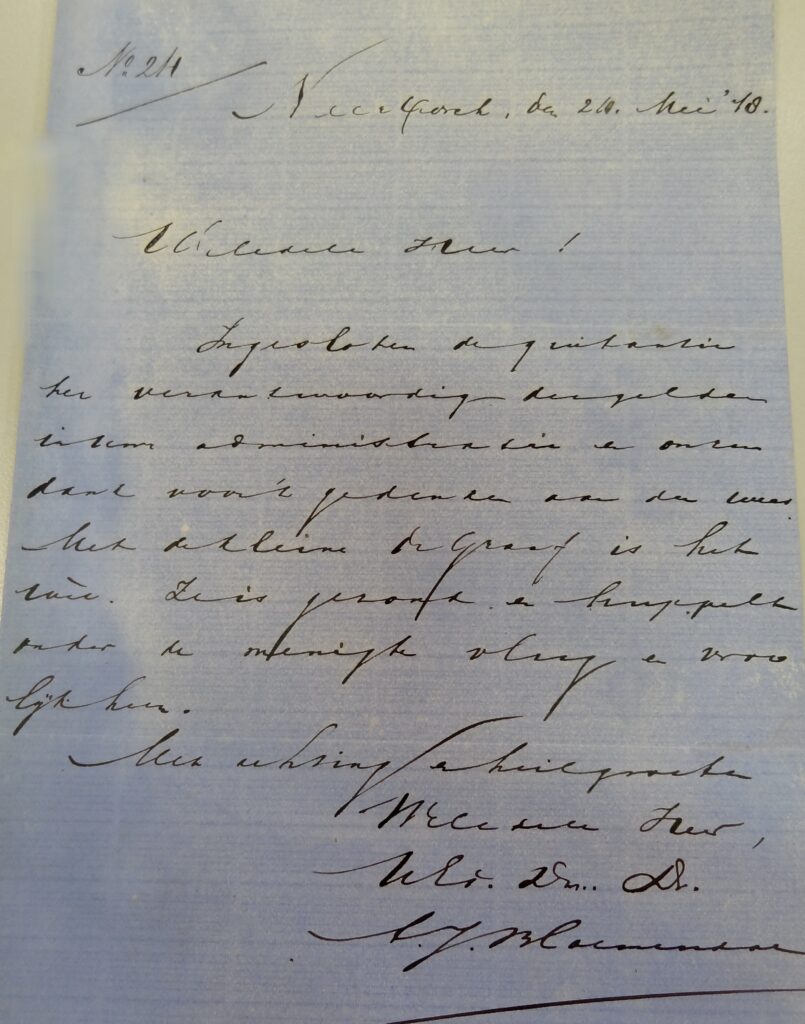 No 24
Neerbosch, den 24. Mei '18.
Weledele Heer!
Ingesloten de quitantie
ter verantwoording der gelden
in uwe administratie en onzen
dank voor 't gedenken aan den wees.
Met de kleine de Graaf is het
wèl. Ze is gezond en huppelt
onder de menigte vlug en vroo
lijk heen.
Met achting & heilgroeten
WelEdele Heer,
UEd. Dw. Dr.
A. J. Bloemendaal